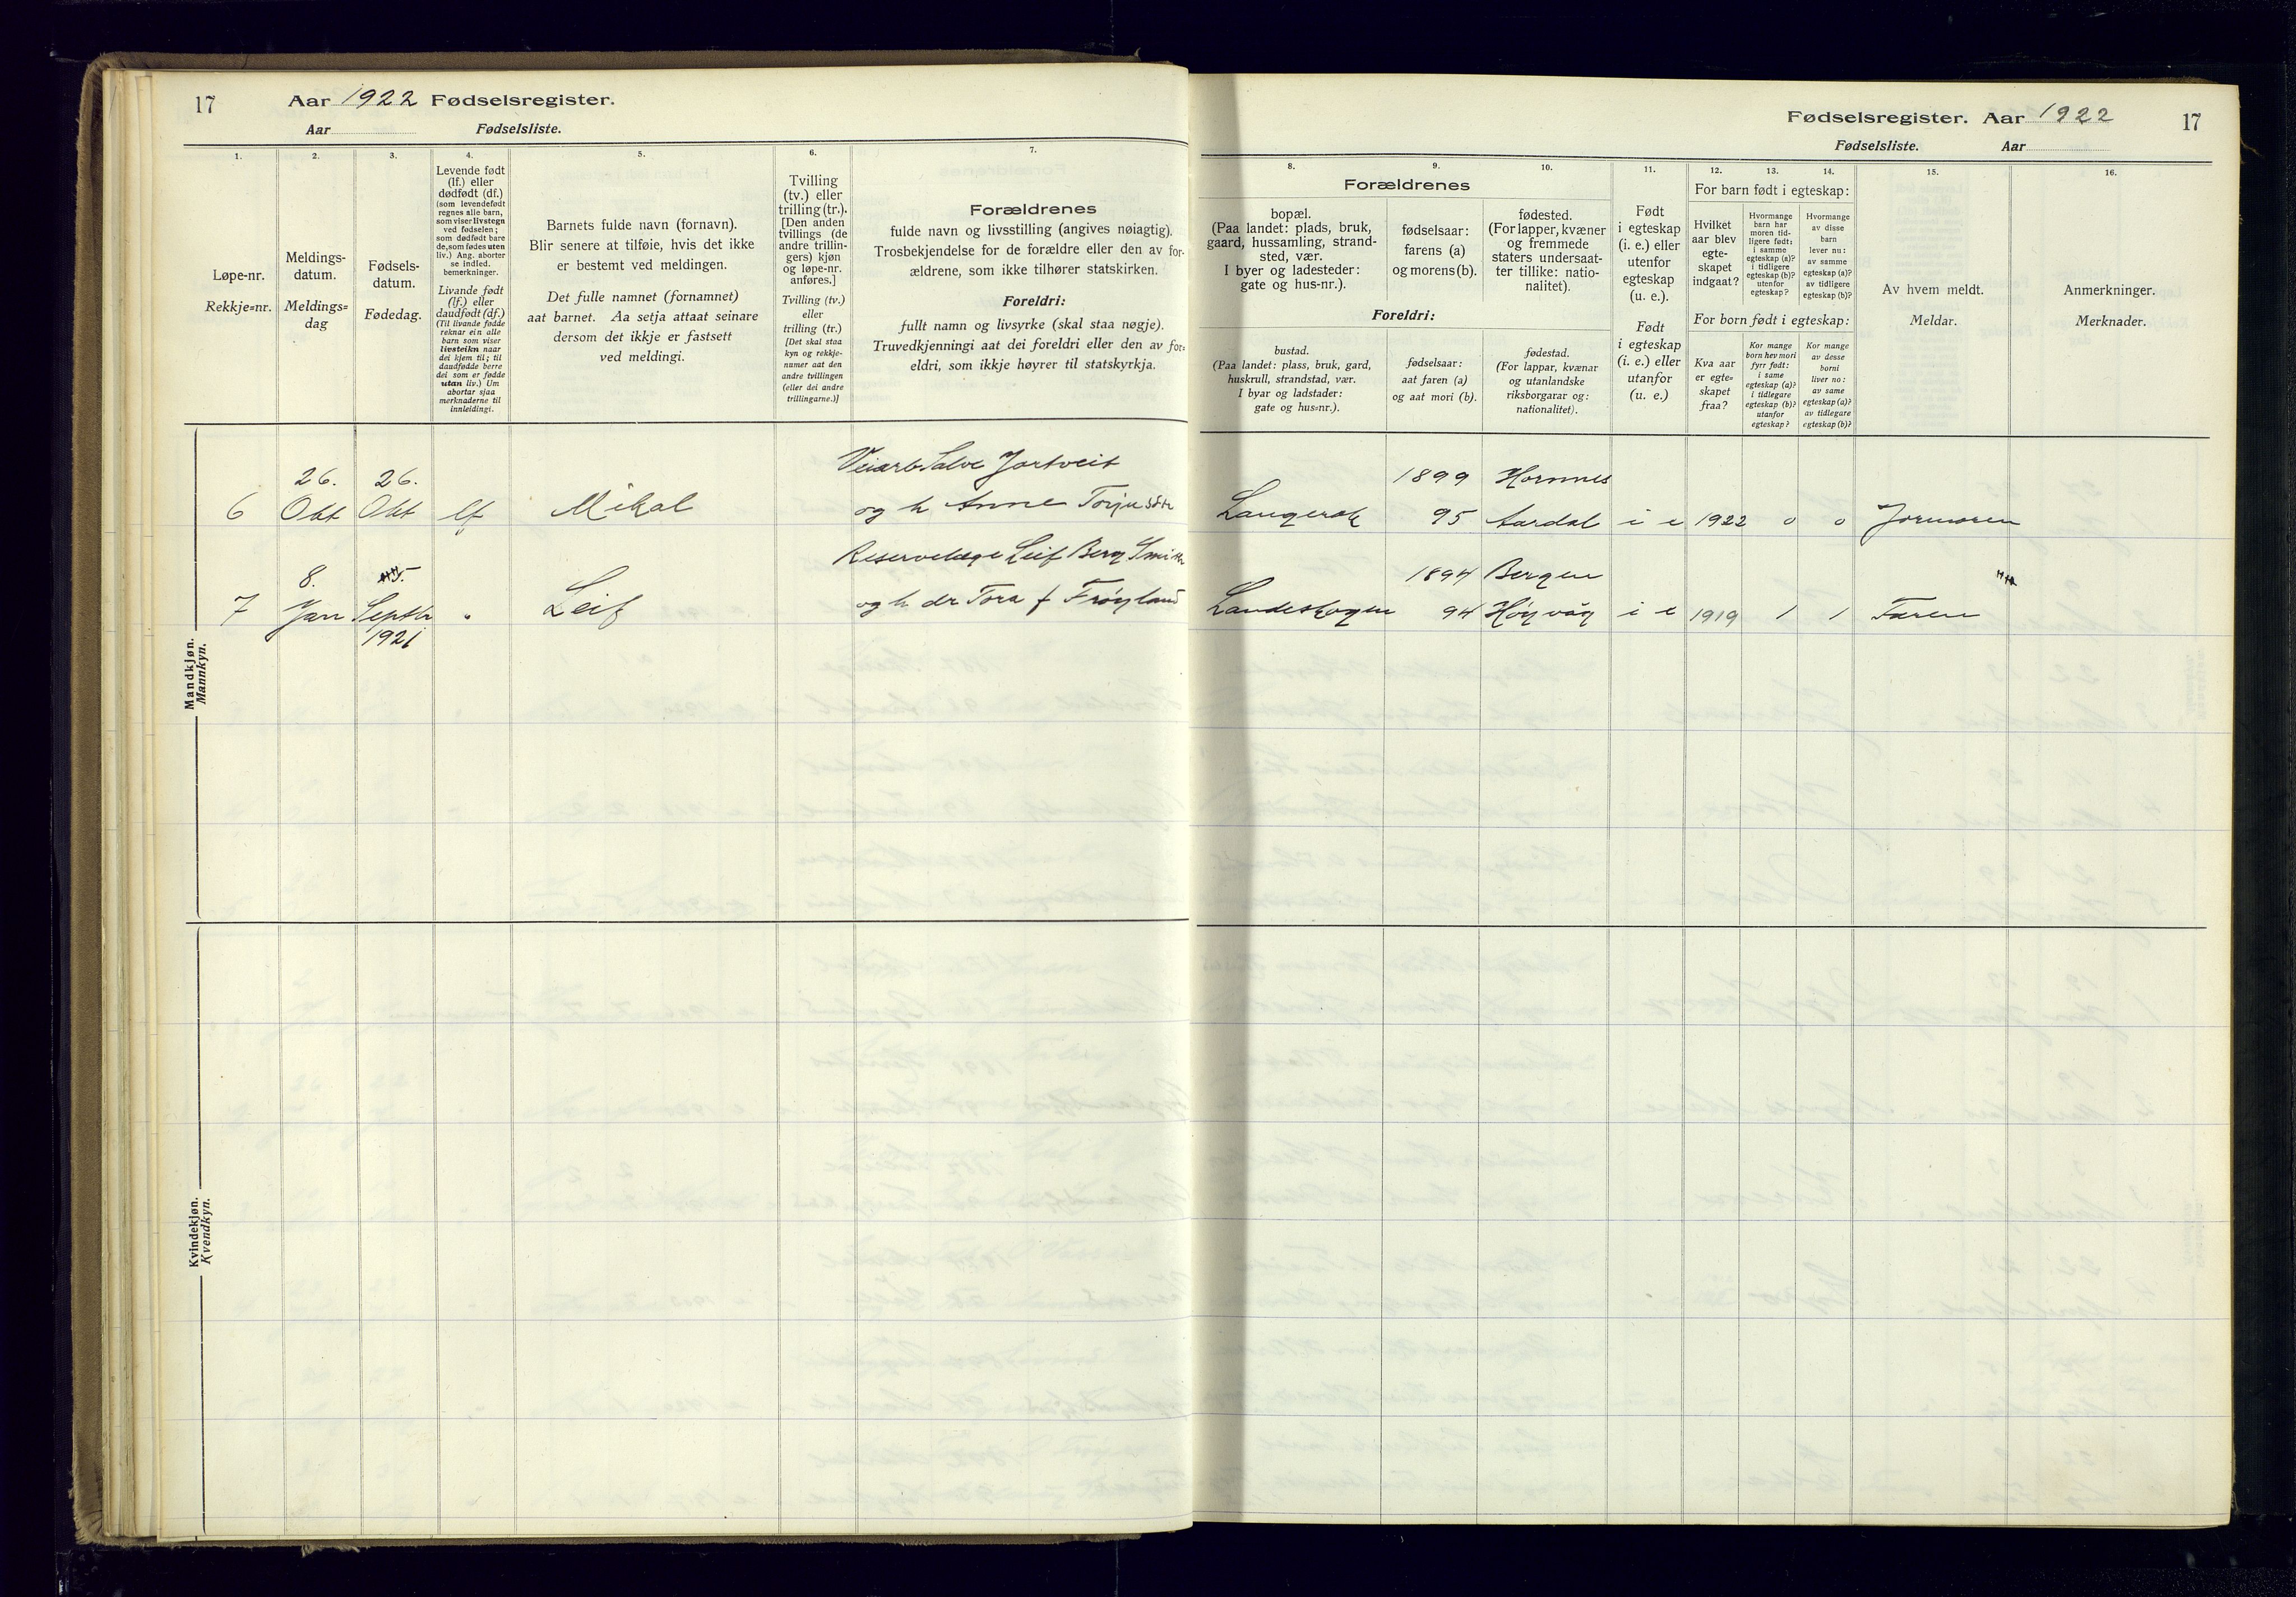 17
Aar 1922 Fødselsregister.
Aar Fødselsliste.
1.
Løpe-nr.
Rekkje=nr.
2.
Meldings-
datum.
Meldings=
dag
3.
Fødsels-
datum.
Fødedag.
4.
Levende født
(lf.) eller
dødfødt (df.)
(som levendefødt
regnes alle barn,
som viser livstegn
ved fødselen;
som dødfødt bare
de, som fødes uten
liv.) Ang. aborter
se indled.
bemerkninger.
Livande født
(lf.) eller
daudfødt (df.)
(Til livande fødde
reknar ein alle
barn som viser
livsteikn naar
dei kjem til; til
daudfødde berre
dei som er fødde
utan liv.) Um
abortar sjaa
merknaderne til
innleidingi.
5.
Barnets fulde navn (fornavn).
Blir senere at tilføie, hvis det ikke
er bestemt ved meldingen.
Det fulle namnet (fornamnet)
aat barnet. Aa setja attaat seinare
dersom det ikkje er fastsett
ved meldingi.
6.
Tvilling
(tv.) eller
trilling (tr.).
[Den anden
tvillings (de
andre trillin-
gers) kjøn
og løpe-nr.
anføres.]
Tvilling (tv.)
eller
trilling (tr.)
[Det skal staa
kyn og rekkje-
numer aat den
andre tvillingen
(eller dei andre
trillingarne.)]
7.
Forældrenes
fulde navn og livsstilling (angives nøiagtig).
Trosbekjendelse for de forældre eller den av for-
ældrene, som ikke tilhører statskirken.
Foreldri:
fullt namn og livsyrke (skal staa nøgje).
Truvedkjenningi aat dei foreldri eller den av for=
eldri, som ikkje høyrer til statskyrkja.
Mandkjøn.
Mannkyn.
26. 26. Veiarb Salve Jortveit
6 Okt Okt lf Mikal og h Anne Torjusdtr
8. 5. Reservelæge Leif Berg Smith
7 Jan Septbr " Leif og h dr Tora f Frøyland
1921
Kvindekjøn.
Kvendkyn.
Fødselsregister. Aar 1922 17
Fødselsliste. Aar
8.
Forældrenes
bopæl.
(Paa landet: plads, bruk,
gaard, hussamling, strand-
sted, vær.
I byer og ladesteder:
gate og hus-nr.).
9.
fødselsaar:
farens (a)
og morens (b).
10.
fødested.
(For lapper, kvæner
og fremmede
staters undersaat-
ter tillike: natio-
nalitet).
Foreldri:
bustad.
(Paa landet: plass, bruk, gard,
huskrull, strandstad, vær.
I byar og ladstader:
gate og hus=nr.).
fødselsaar:
aat faren (a)
og aat mori (b).
fødestad.
(For lappar, kvænar
og utanlandske
riksborgarar og:
nationalitet).
11.
Født
i egteskap
(i. e.) eller
utenfor
egteskap
(u. e.).
Født
i egteskap
(i. e.) eller
utanfor
(u. e.)
12. 13. 14.
For barn født i egteskap:
Hvilket
aar blev
egte-
skapet
indgaat?
Hvormange
barn har
moren tid-
ligere født:
i samme
egteskap (a)?
i tidligere
egteskap (b)?
utenfor
egteskap?
Hvormange
av disse
barn
lever nu:
av samme
egteskap (a)?
av tidligere
egteskap (b)?
For born født i egteskap:
Kva aar
er egte=
skapet
fraa?
Kor mange
born hev mori
fyrr født:
i same
egteskap (a)?
i tidlegare
egteskap (b)?
utanfor
egteskap?
Kor mange
av desse
borni
liver no:
av same
egteskap (a)?
av tidlegare
egteskap (b)?
15.
Av hvem meldt.
Meldar.
16.
Anmerkninger.
Merknader.
1899 Hornnes
Langerak 95 Aardal i e 1922 0 0 Jormoren
1894 Bergen
Landeskogen 94 Høyvåg i e 1919 1 1 Faren